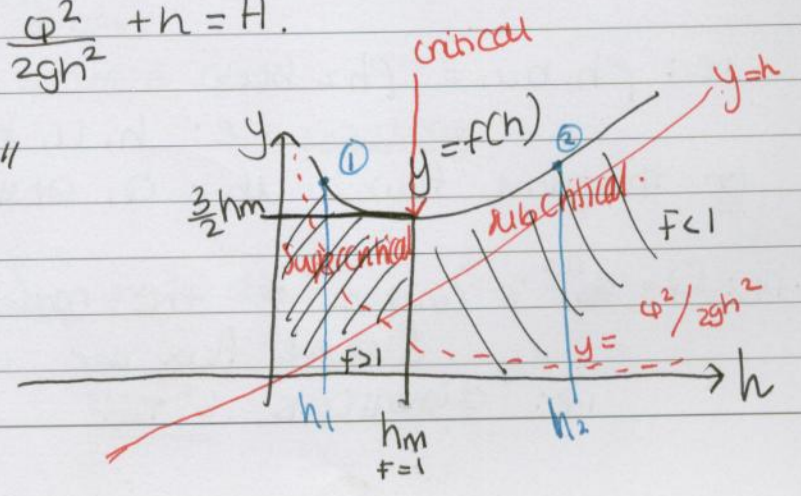 φ²/2gh² + h = H.
critical
y=h
y
①
y=f(h)
②
3/2 hm
Supercritical
subcritical.
F<1
F>1
y= φ²/2gh²
h
h₁
hm
h₂
F=1